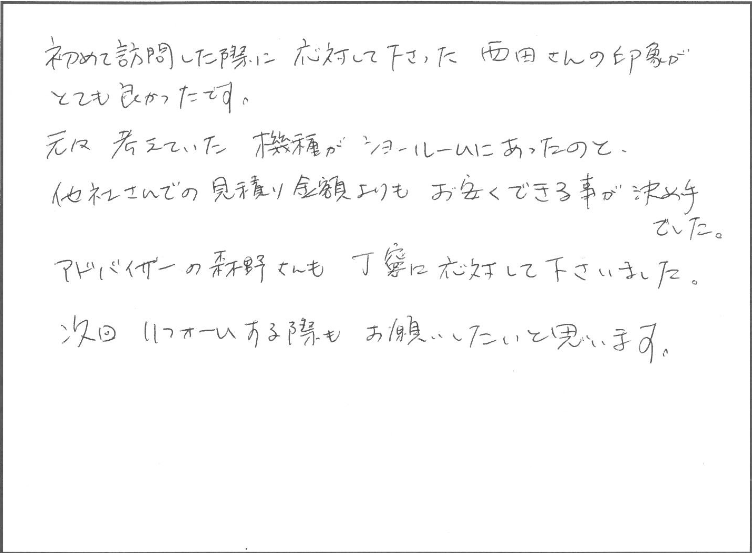 初めて訪問した際に 応対して下さった 西田さんの印象が
とても良かったです。
元々 考えていた 機種が ショールームにあったのと、
他社さんでの見積り金額よりも お安くできる事が 決め手
でした。
アドバイザーの森野さんも 丁寧に応対して下さいました。
次回 リフォームする際も お願いしたいと思います。